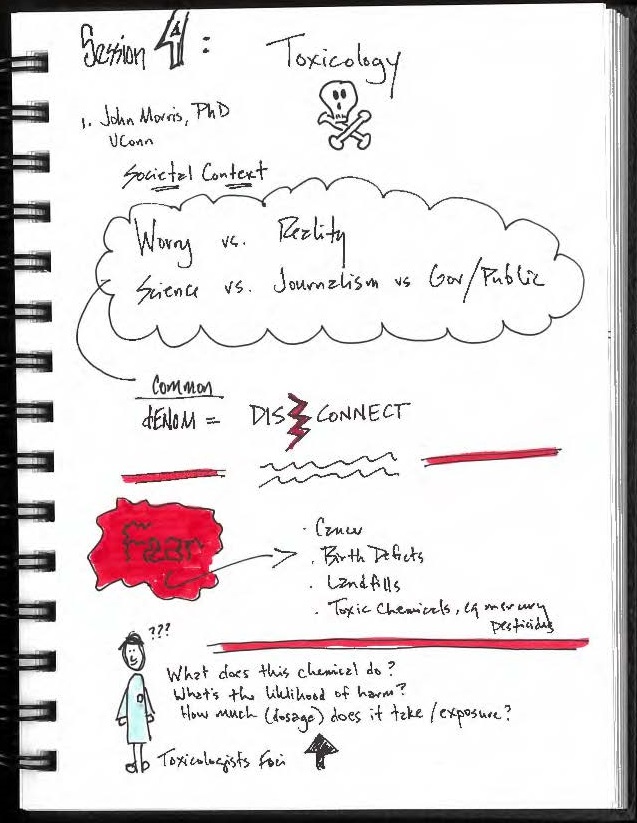 Session 4: Toxicology
1. John Morris, PhD
UConn
Societal Context
Worry vs. Reality
Science vs. Journalism vs Gov/Public
Common
dENOM = DIS CONNECT
Fear
· Cancer
· Birth Defects
· Landfills
· Toxic Chemicals, eg mercury
pesticides
???
What does this chemical do?
What's the liklihood of harm?
How much (dosage) does it take/exposure?
Toxicologists Foci